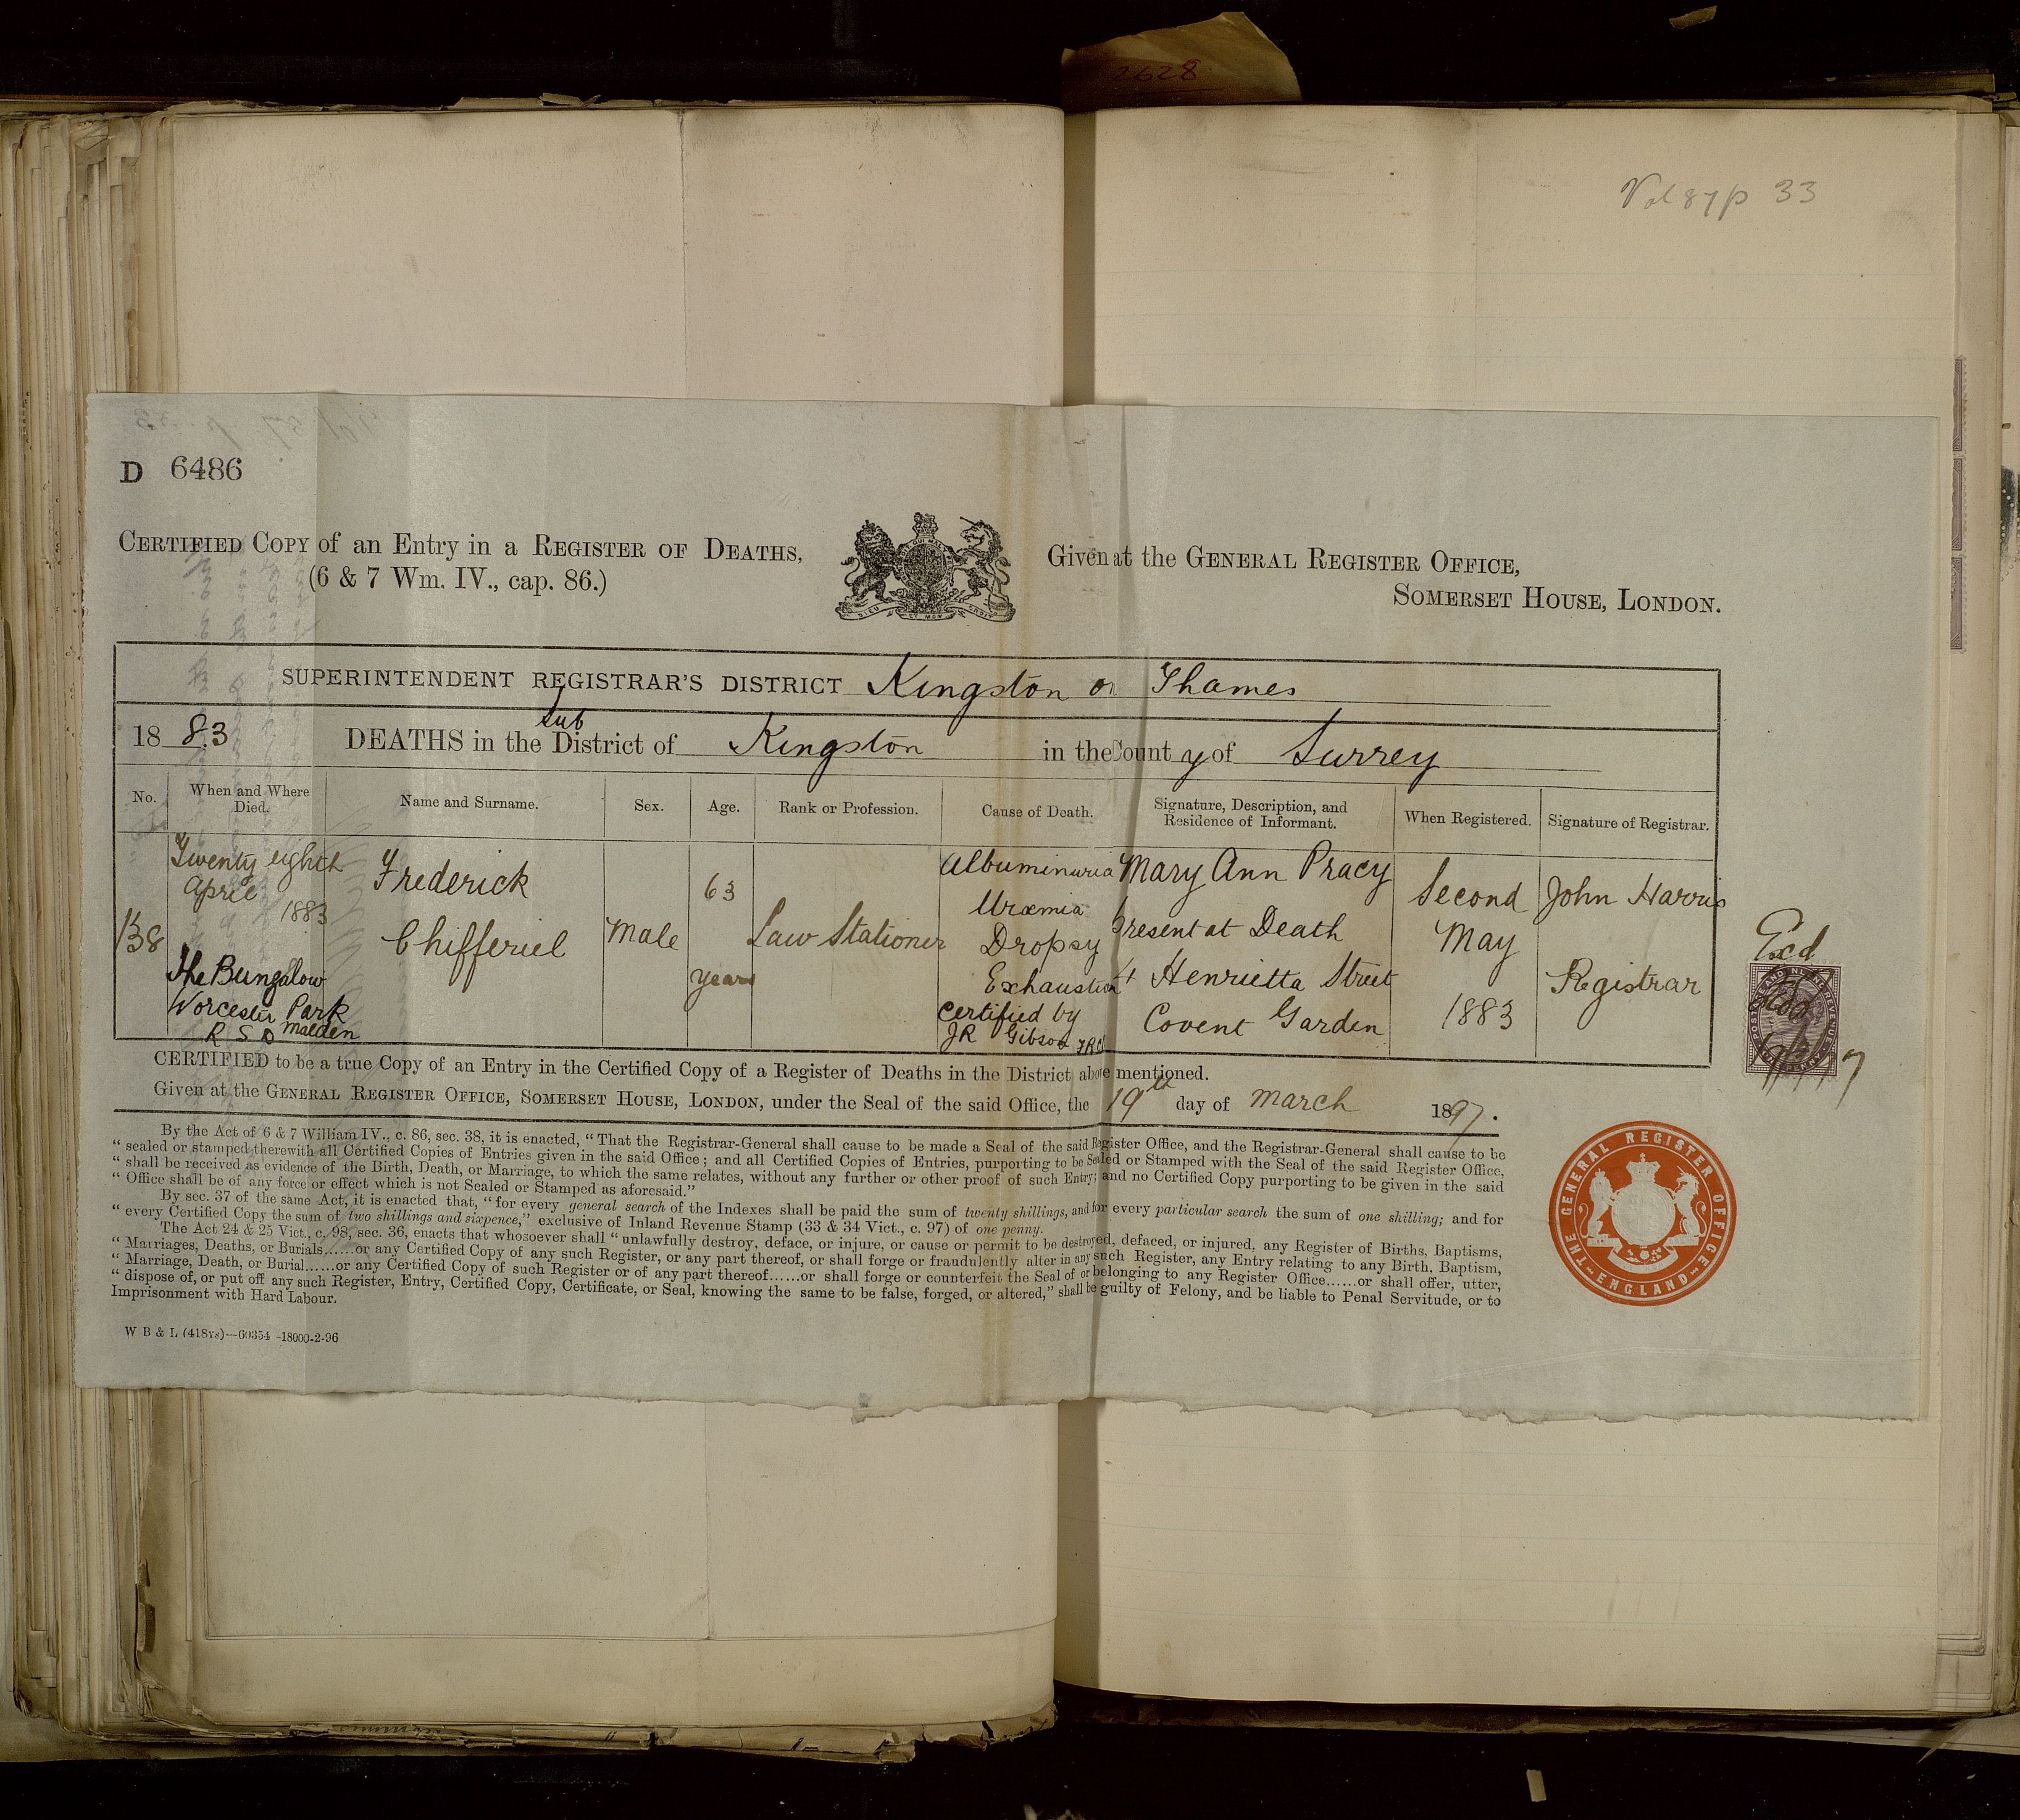 2628
Vol 87 p 33
D 6486
CERTIFIED COPY of an Entry in a REGISTER OF DEATHS,
(6 & 7 Wm. IV., cap. 86.)
Given at the GENERAL REGISTER OFFICE,
SOMERSET HOUSE, LONDON.
SUPERINTENDENT REGISTRAR'S DISTRICT Kingston on Thames
1883 DEATHS in the sub District of Kingston in the County of Surrey
No. When and Where Died. Name and Surname. Sex. Age. Rank or Profession. Cause of Death. Signature, Description, and Residence of Informant. When Registered. Signature of Registrar.
138
Twenty eighth
April
1883
The Bungalow
Worcester Park
Malden
R S D
Frederick
Chifferiel
Male
63
years
Law Stationer
Albuminuria
Uræmia
Dropsy
Exhaustion
Certified by
JR Gibson FRC
Mary Ann Pracy
Present at Death
4 Henrietta Street
Covent Garden
Second
May
1883
John Harris
Registrar
Exd
CERTIFIED to be a true Copy of an Entry in the Certified Copy of a Register of Deaths in the District above mentioned.
Given at the GENERAL REGISTER OFFICE, SOMERSET HOUSE, LONDON, under the Seal of the said Office, the 19th day of March 1897.
By the Act of 6 & 7 William IV., c. 86, sec. 38, it is enacted, "That the Registrar-General shall cause to be made a Seal of the said Register Office, and the Registrar-General shall cause to be
" sealed or stamped therewith all Certified Copies of Entries given in the said Office; and all Certified Copies of Entries, purporting to be Sealed or Stamped with the Seal of the said Register Office,
" shall be received as evidence of the Birth, Death, or Marriage, to which the same relates, without any further or other proof of such Entry; and no Certified Copy purporting to be given in the said
" Office shall be of any force or effect which is not Sealed or Stamped as aforesaid."
By sec. 37 of the same Act, it is enacted that, "for every general search of the Indexes shall be paid the sum of twenty shillings, and for every particular search the sum of one shilling; and for
" every Certified Copy the sum of two shillings and sixpence," exclusive of Inland Revenue Stamp (33 & 34 Vict., c. 97) of one penny.
The Act 24 & 25 Vict., c. 98, sec. 36, enacts that whosoever shall "unlawfully destroy, deface, or injure, or cause or permit to be destroyed, defaced, or injured, any Register of Births, Baptisms,
" Marriages, Deaths, or Burials......or any Certified Copy of any such Register, or any part thereof, or shall forge or fraudulently alter in any such Register, any Entry relating to any Birth, Baptism,
" Marriage, Death, or Burial......or any Certified Copy of such Register or of any part thereof......or shall forge or counterfeit the Seal of or belonging to any Register Office......or shall offer, utter,
" dispose of, or put off any such Register, Entry, Certified Copy, Certificate, or Seal, knowing the same to be false, forged, or altered," shall be guilty of Felony, and be liable to Penal Servitude, or to
Imprisonment with Hard Labour.
THE GENERAL REGISTER OFFICE
ENGLAND
W B & L (418rs)—60354-18000-2-96